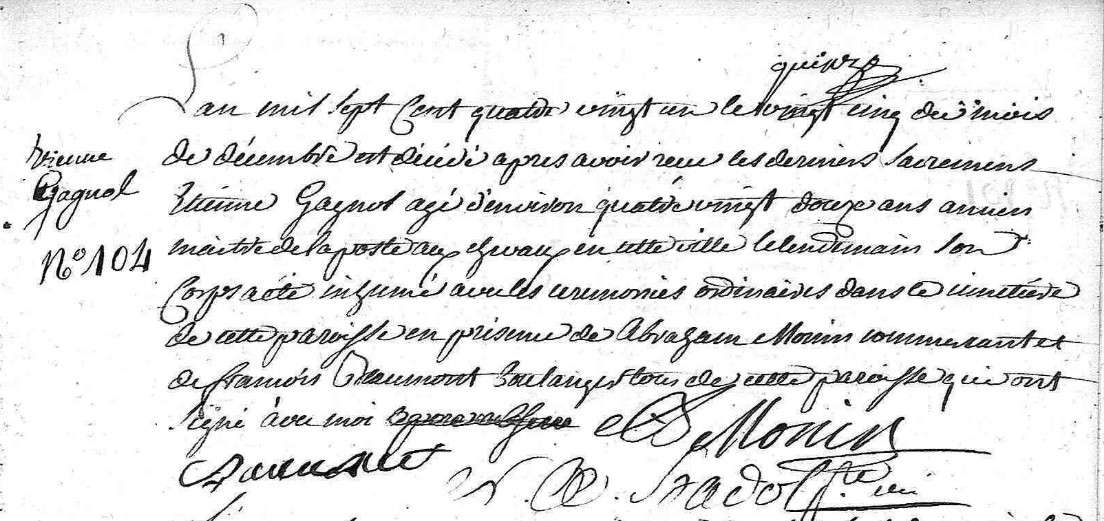 quinze
L'an mil sept Cent quatre vingt un le vingt cinq du mois
de décembre est décédé apres avoir recu les derniers Sacremens
Etienne
Gagnol
Etienne Gagnol agé d'environ quatre vingt douze ans ancien
maitre de la poste aux chevaux en cette ville le lendemain son
N° 104
Corps a été inhumé avec les ceremonies ordinaires dans le cimetière
de cette paroisse en présence de Abraham Monin commercant et
de francois boulanger tous de cette paroisse qui ont
signé avec moi
Monin